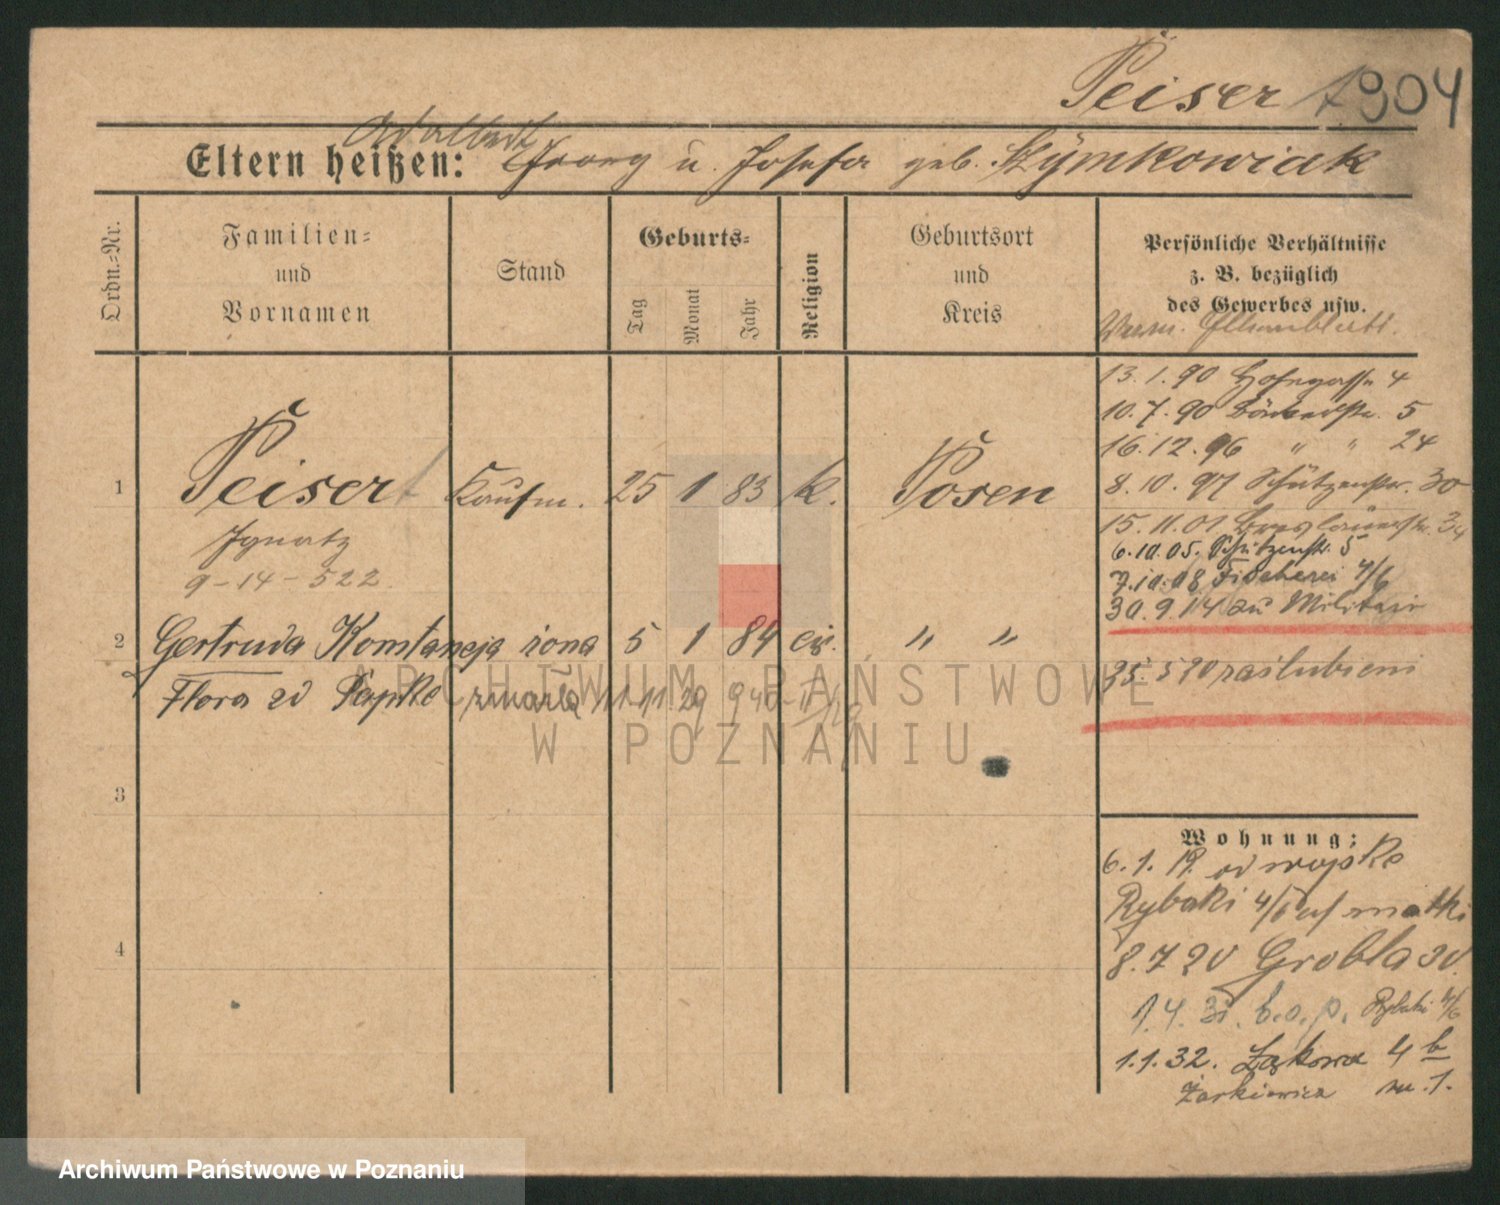 Peiser 7904
Adalbert
Eltern heißen: Georg u. Josefa geb. Szymkowiak
Ordn.-Nr.
Familien-
und
Vornamen
Stand
Geburts-
Tag
Monat
Jahr
Religion
Geburtsort
und
Kreis
Persönliche Verhältnisse
z. B. bezüglich
des Gewerbes usw.
13.1.90 Hofegasse 4
10.7.90 5
16.12.96 " " 24
8.10.97 Schützenstr. 30
15.11.01 Breslauerstr. 34
6.10.05. Schützenstr. 5
7.10.08 Fischerei 4/6
30.9.14 zu Militair
25.5 20 zaślubieni
1 Peisert Kaufm. 25 1 83 k. Posen
Ignatz
9-14-522
2 Gertruda Konstancja żona 5 1 84 " "
Flora zmarła
3
4
Wohnung:
6.1.19. od wojska
Rybaki 4/6 matki
8.7 20 Grobla 30.
1.4.31. b.o.p. Rybaki 4/6
1.1.32. Łąkowa 4 b
Żarkiewicz m. 1.
ARCHIWUM PAŃSTWOWE
W POZNANIU
Archiwum Państwowe w Poznaniu